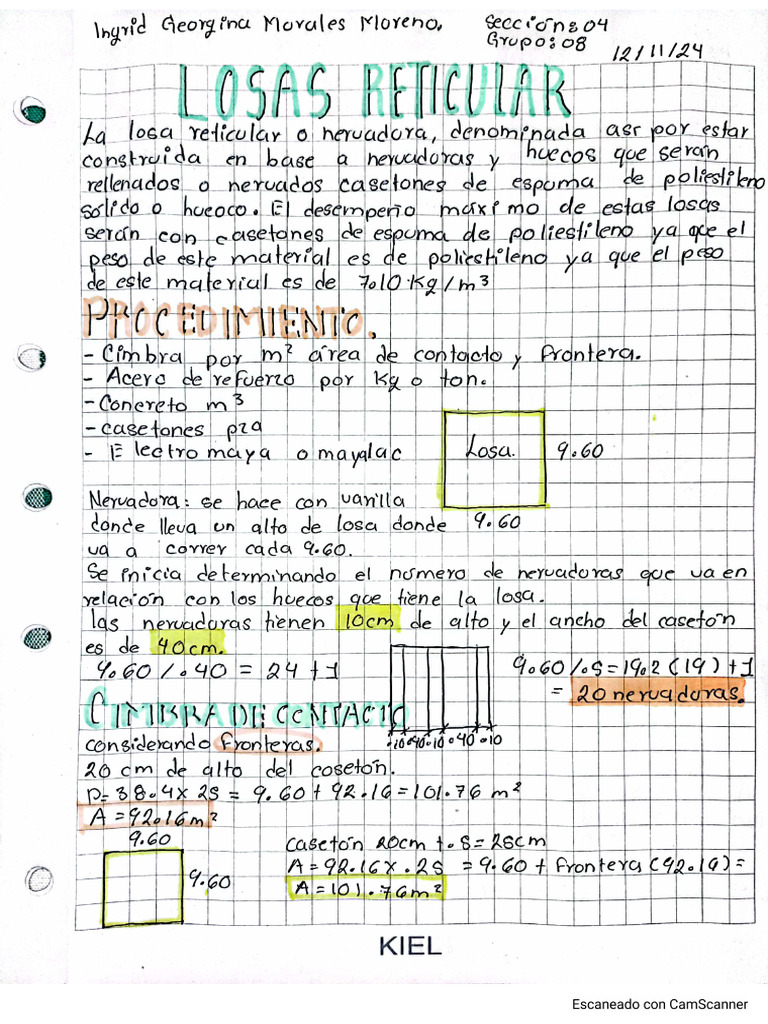 Ingrid Georgina Morales Moreno.
Sección: 04
Grupo: 08
12/11/24
LOSAS RETICULAR
La losa reticular o nervadura, denominada asr por estar
construida en base a nervaduras y huecos que serán
rellenados o nervados casetones de espuma de poliestileno
solido o hueoco. El desempeño máximo de estas losas
serán con casetones de espuma de poliestileno ya que el
peso de este material es de poliestileno ya que el peso
de este material es de 7.10 kg/m³
PROCEDIMIENTO.
- Cimbra por m² área de contacto y frontera.
- Acero de refuerzo por kg o ton.
- Concreto m³
- casetones pza
- Electromaya o mayalac
Losa.
9.60
9.60
Nervadora: se hace con varilla
donde lleva un alto de losa donde
va a correr cada 9.60.
Se inicia determinando el número de nervaduras que va en
relación con los huecos que tiene la losa.
las nervaduras tienen 10cm de alto y el ancho del casetón
es de 40cm.
9.60/.40 = 24 +1
9.60/.5=19.2(19)+1
= 20 nervaduras.
CIMBRA DE CONTACTO
.10 .40 .10 .40 .10
considerando fronteras.
20 cm de alto del cosetón.
P=38.4x 25 = 9.60 + 92.16=101.76 m²
A=92.16m²
9.60
9.60
casetón 20cm +.5=25cm
A=92.16x.25 =9.60+frontera(92.16)=
A=101.76m²
KIEL
Escaneado con CamScanner